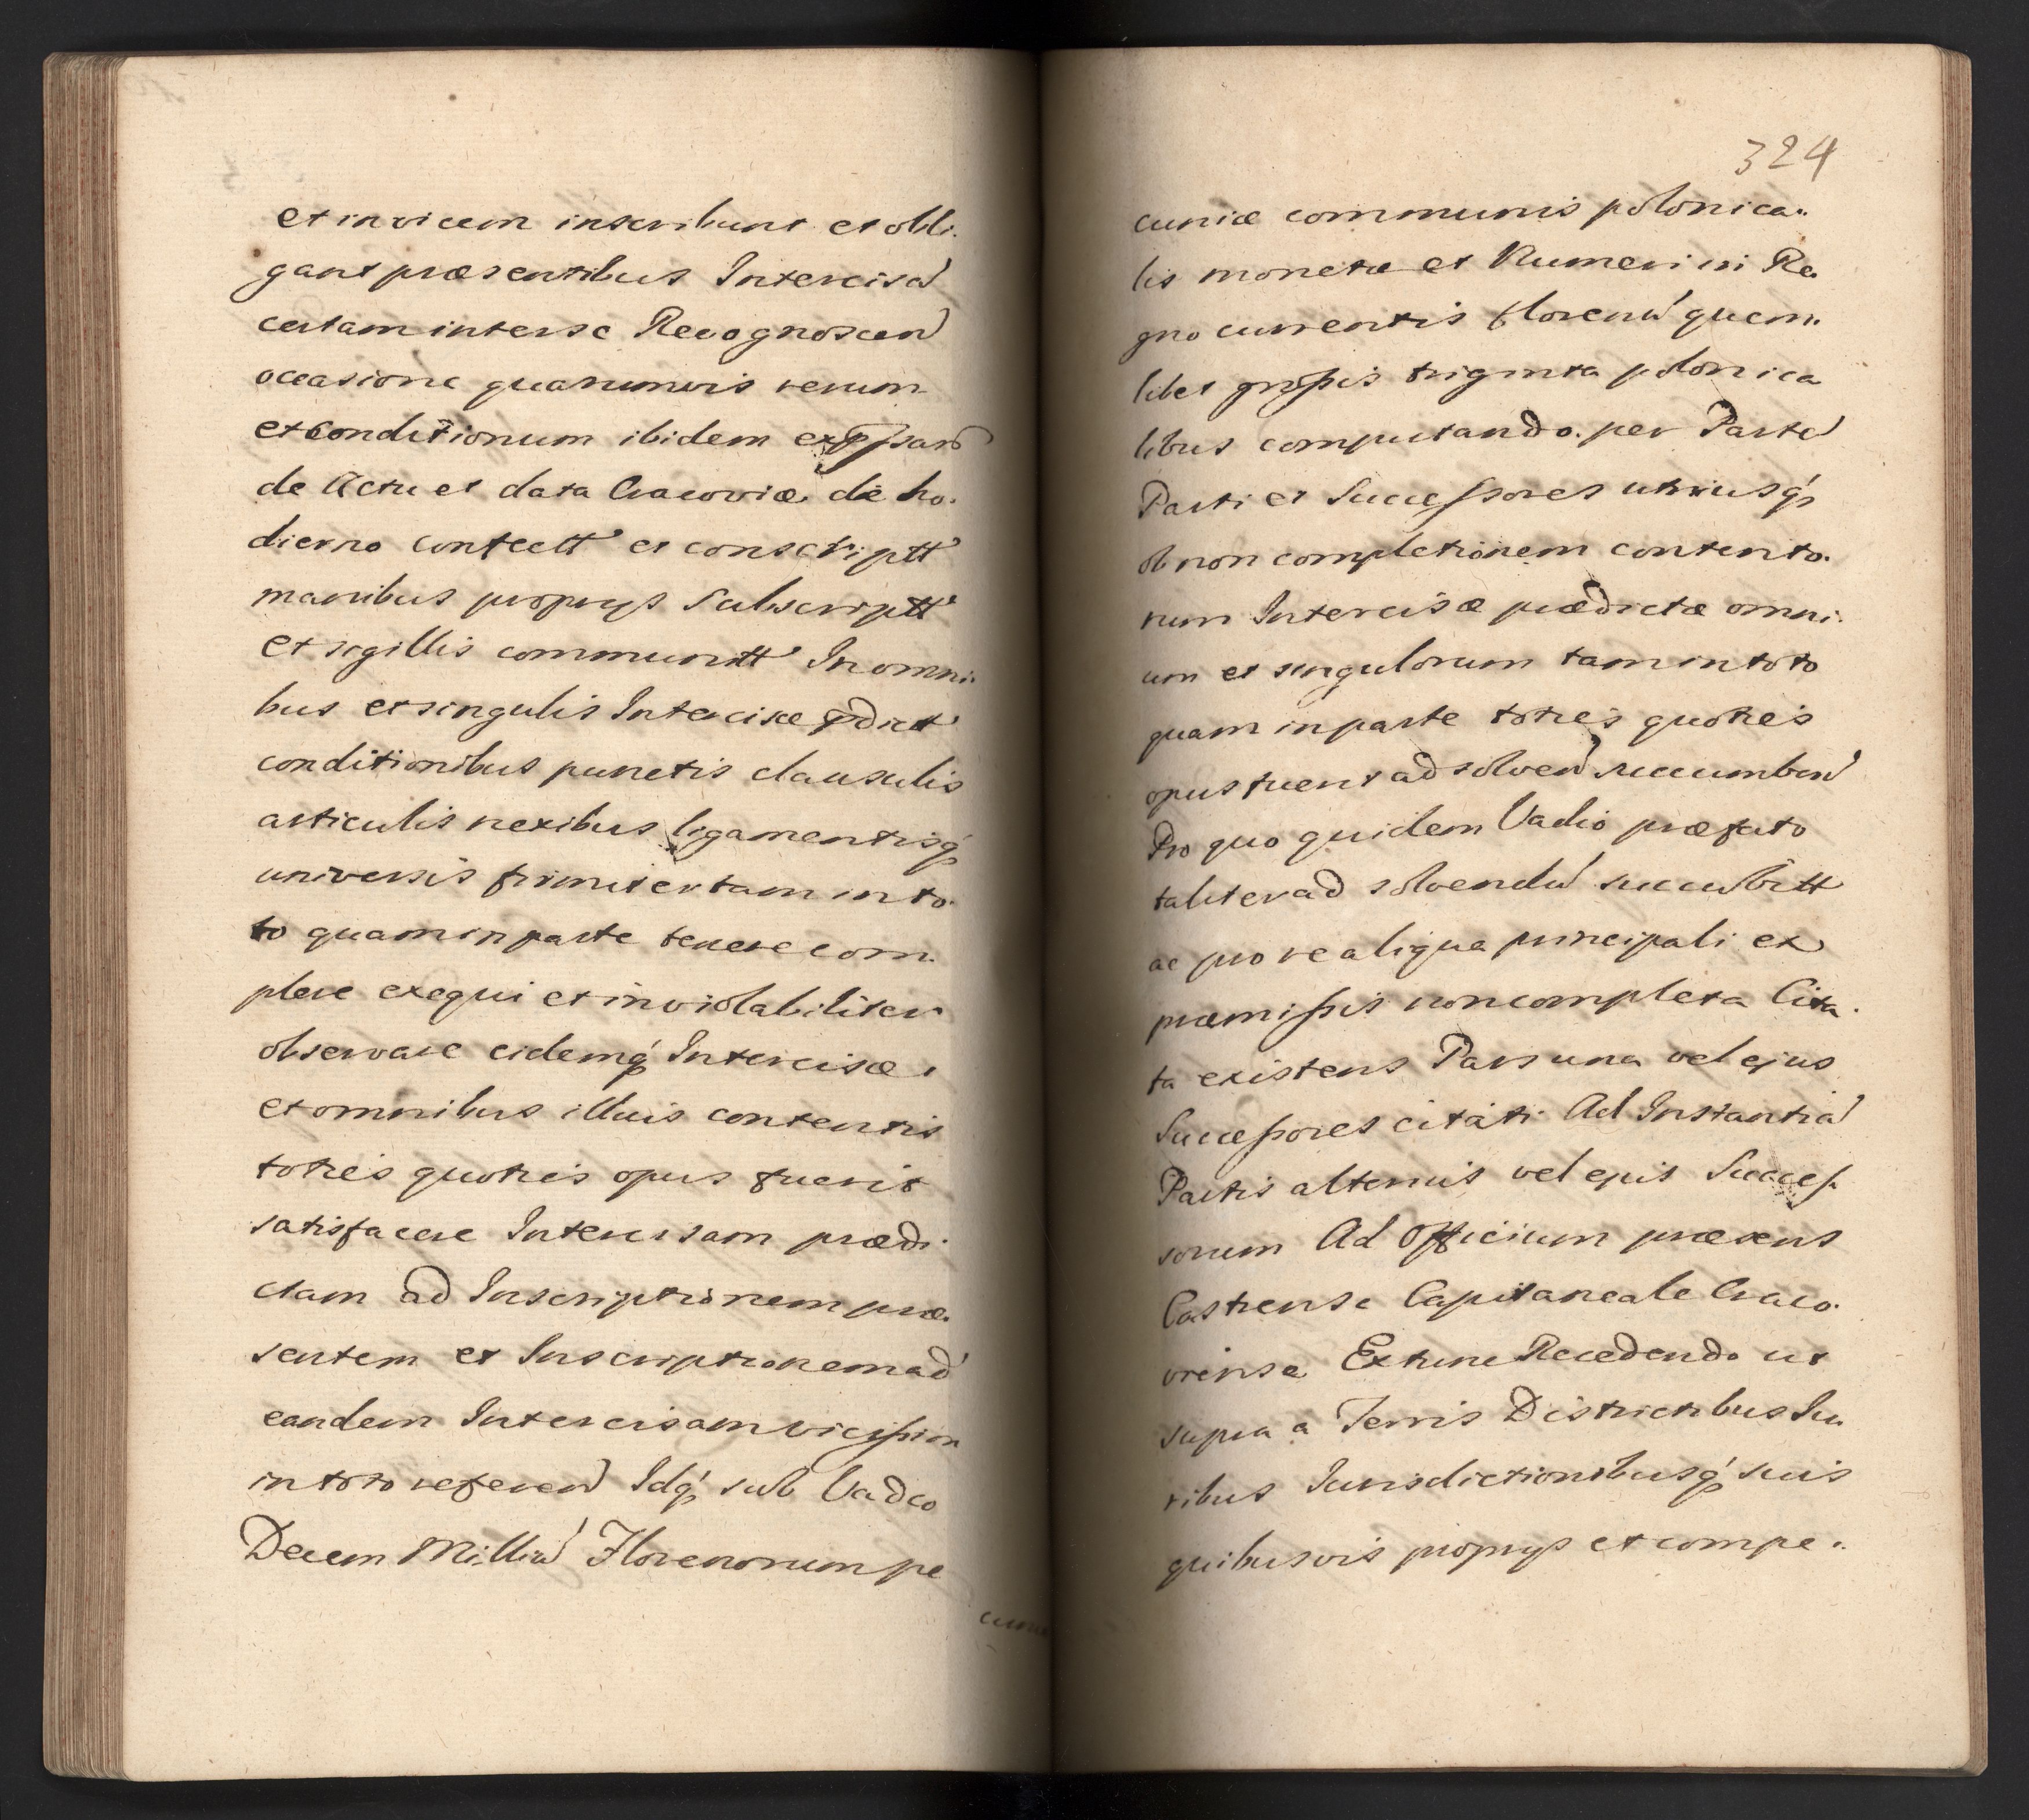 et invicem inscribunt et obli.
gant præsentibus Intercisã
certam inter se Recognoscen
occasione quarumvis rerum
et Conditionum ibidem expssar
de Actu et data Cracoviæ de ho.
dierno confectt et conscriptt
manibus proprys Subscriptt
et sigillis communitt In omni.
bus et singulis Intercisæ pdict
conditionibus punctis clausulis
articulis nexibus ligamentisq
universis firmiter tam in to.
to quam in parte tenere com.
plere exequi et inviolabiliter
observare eidemq Intercisæ
et omnibus illius contentis
toties quoties opus fuerit
satisfacere Intercisam prædi.
ctam ad Inscriptionem præ.
sentem et Inscriptionem ad
eandem Intercisam vicissim
in toto referen Idq sub Vadio
Decem Milliũ Florenorum pe
cuniæ
324
cuniæ communis polonica..
lis monetæ et Numeri in Re
gno currentis florenũ quem.
libet grossis triginta polonica
libus computando. per Parté
Parti et Successores utriusq
ob non completionem contento.
rum Intercisæ prædictæ omni.
um et singulorum tam in toto
quam in parte toties quoties
opus fuerit ad solven succumben
Pro quo quidem Vadio præfato
taliter ad solvendũ succubitt
ac pro re aliqua principali ex
præmissis non completa Cita.
ta existens Pars una vel ejus
Successores citati Ad Instantiã
Partis alterius vel ejus Succes.
sorum Ad Officium præsens
Castrense Capitaneale Craco.
viense Extunc Recedendo ut
supra a Terris Districtibus Iu
ribus Iurisdictionibusq suis
quibusvis proprys et compe..